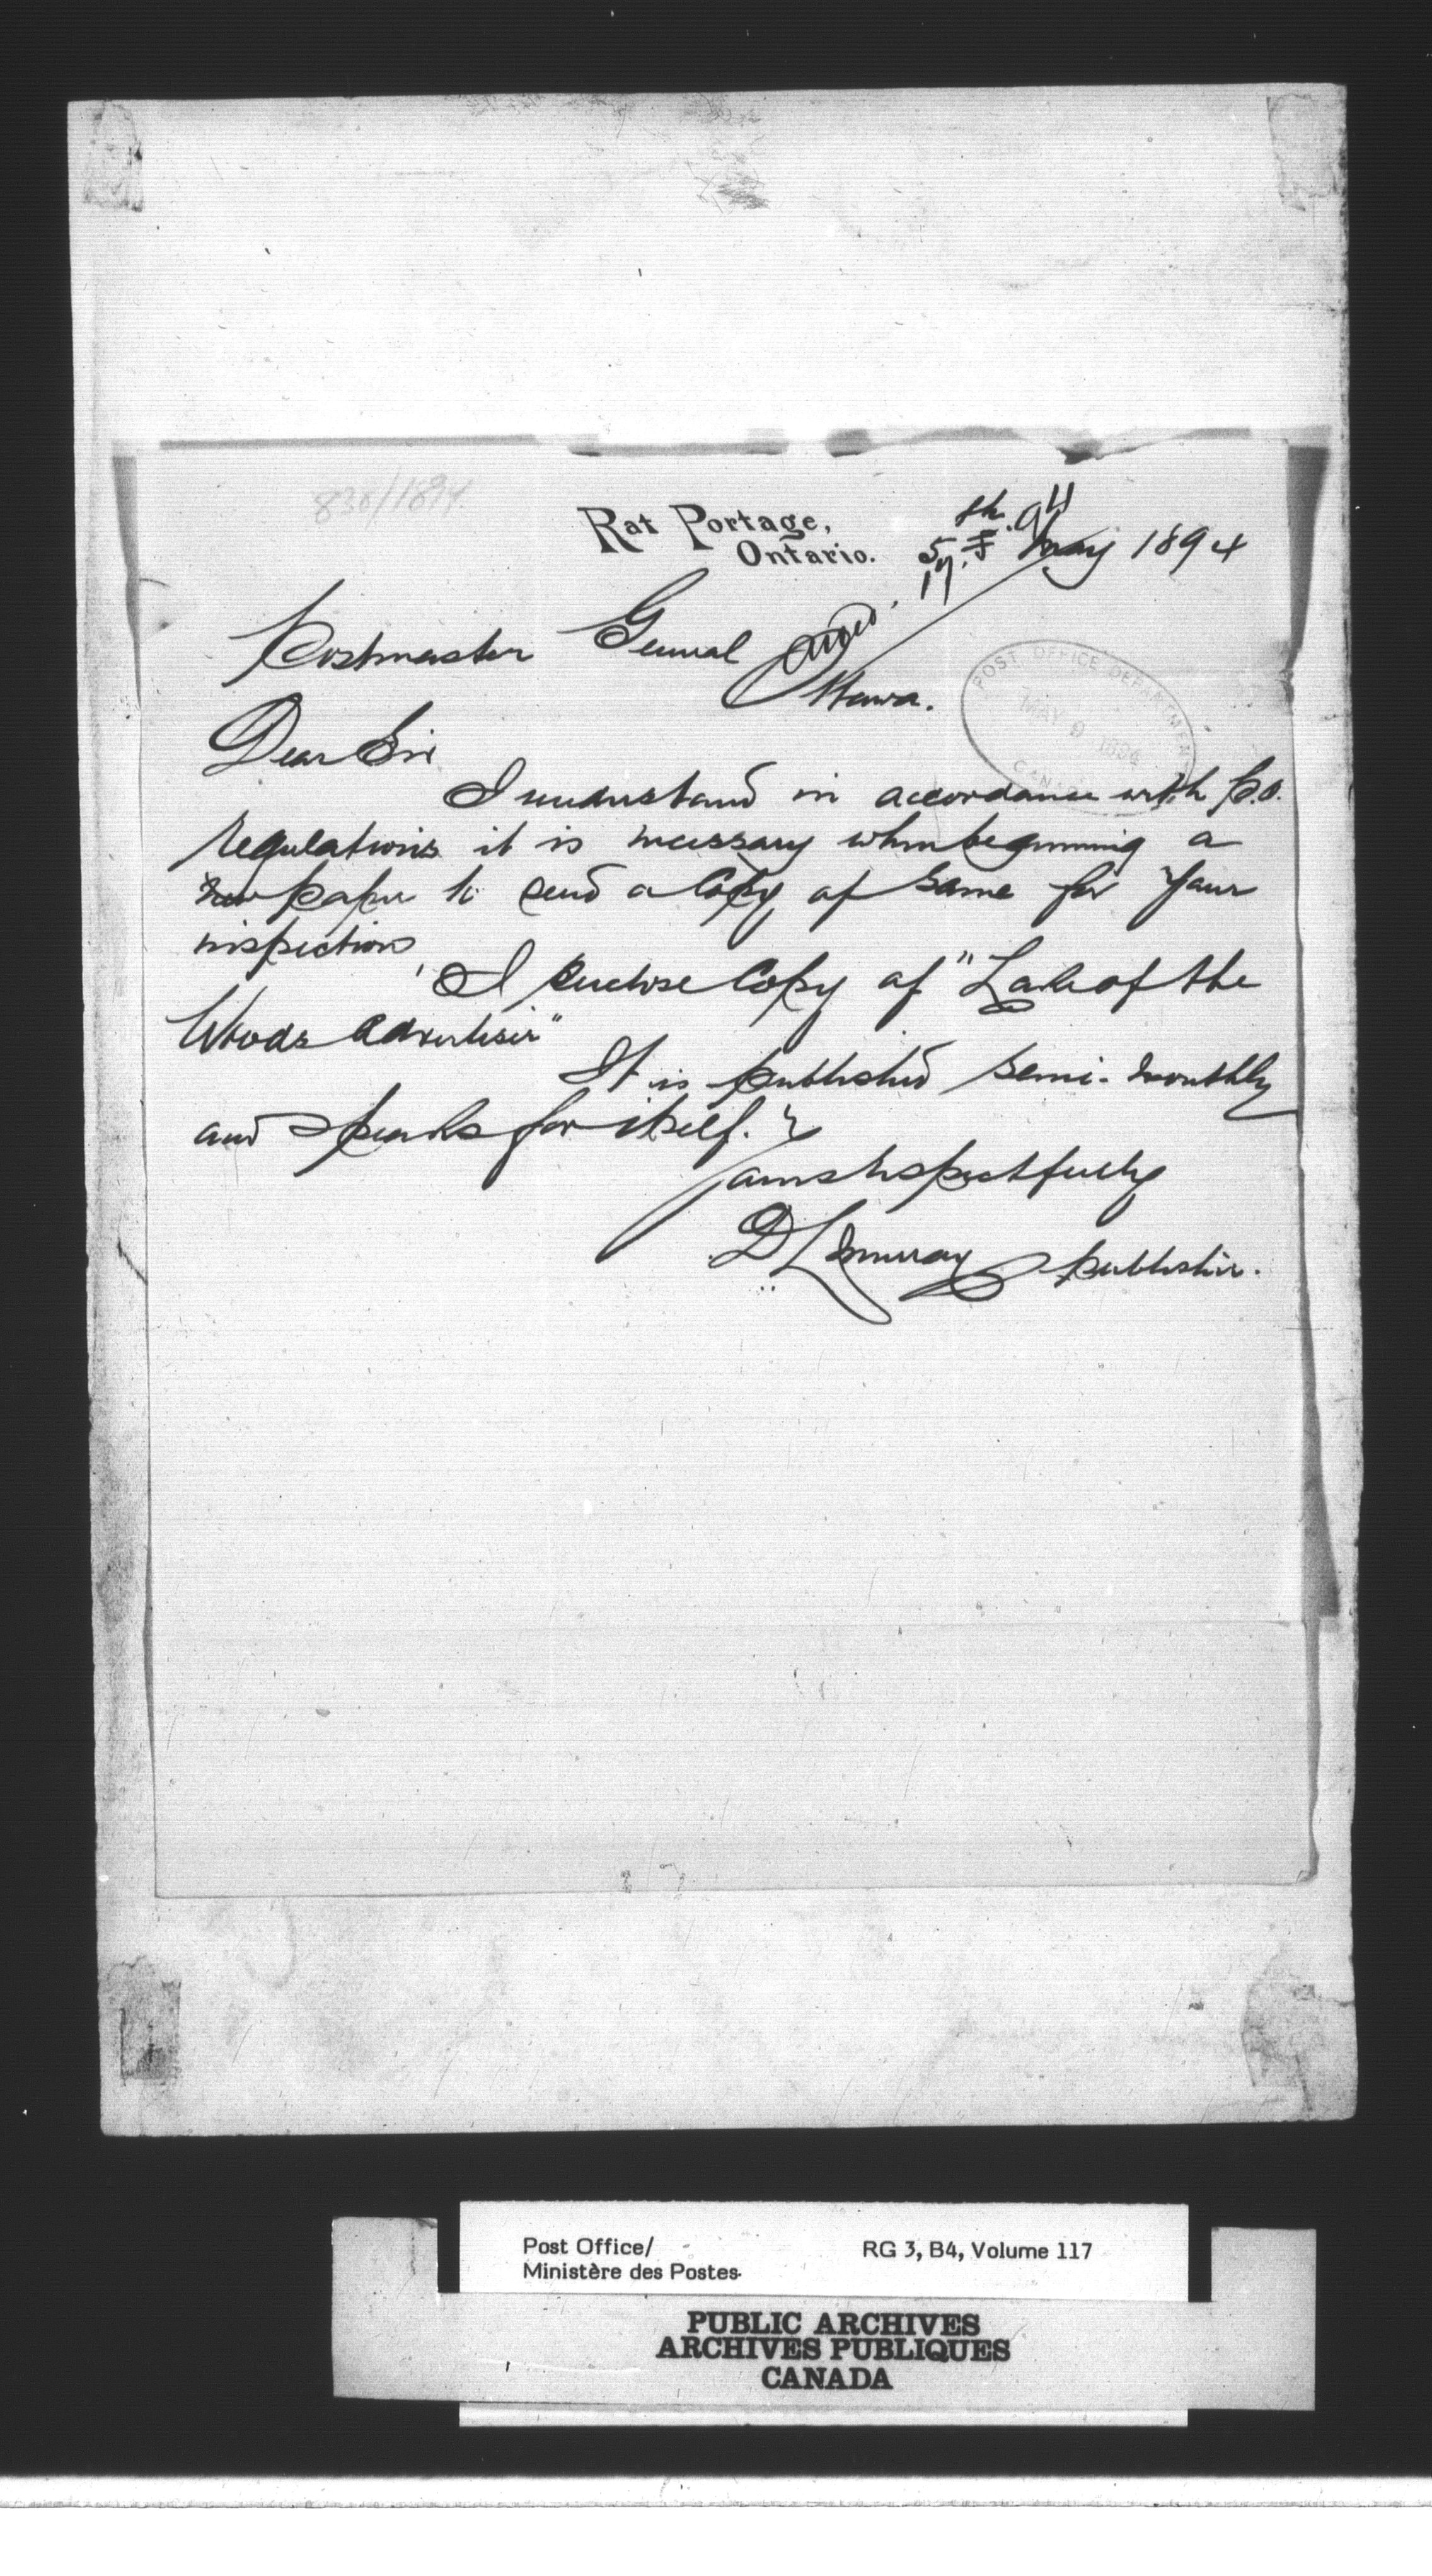 830/1894
Rat Portage,
Ontario.
5th May 1894
17.5.94
Postmaster General
Ottawa.
POST OFFICE DEPARTMENT
MAY 9 1894
CANADA
Dear Sir
I understand in accordance with P.O.
regulations it is necessary when beginning a
new paper to send a Copy of same for your
inspection,
I enclose Copy of "Lake of the
Woods Advertiser"
It is published semi-monthly
and speaks for itself.
I am respectfully
D L Murray publisher.
Post Office/
Ministère des Postes
RG 3, B4, Volume 117
PUBLIC ARCHIVES
ARCHIVES PUBLIQUES
CANADA